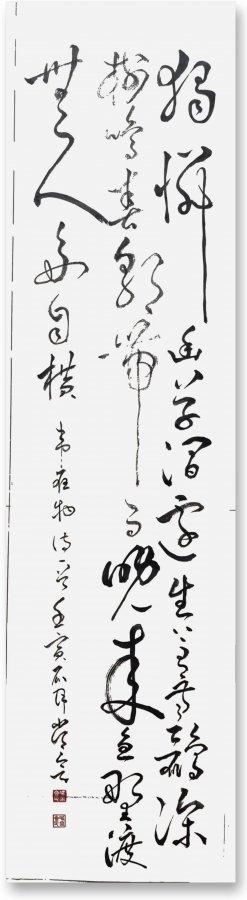 獨憐幽草澗邊生上有黃鸝深
樹鳴春潮帶雨晚來急野渡
無人舟自橫 韋應物詩 壬寅